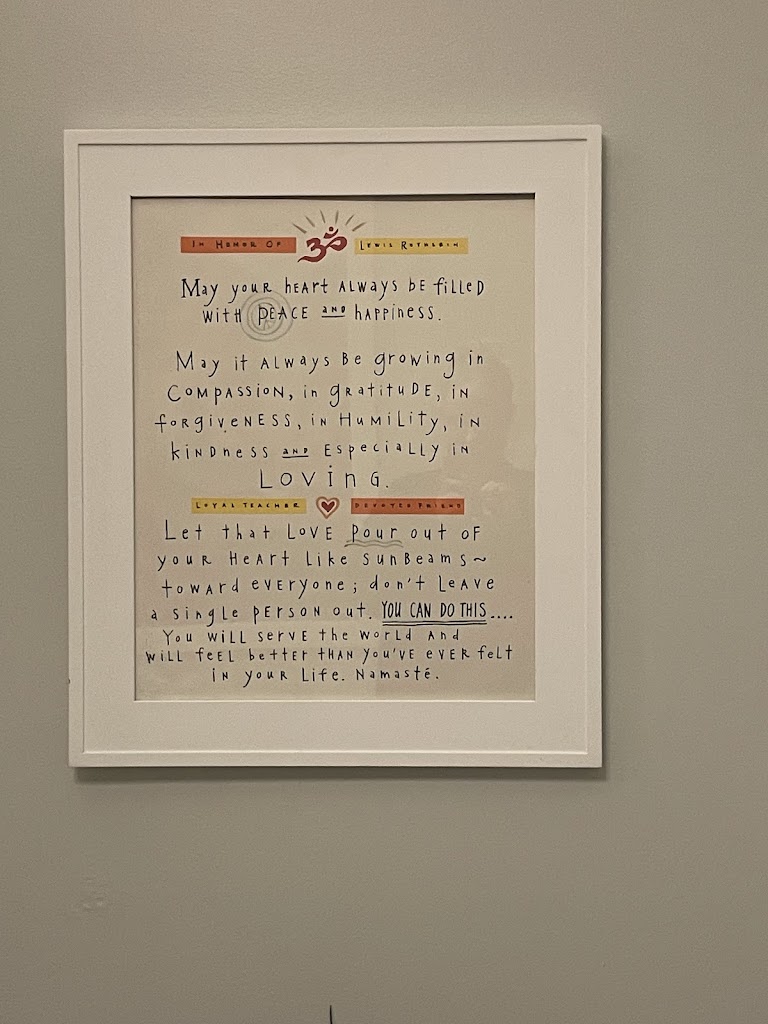 In Honor Of ॐ Lewis Rothlein
May your heart always be filled
with peace and happiness.
May it always be growing in
compassion, in gratitude, in
forgiveness, in humility, in
kindness and especially in
loving.
Loyal Teacher Devoted Friend
Let that love pour out of
your heart like sunbeams~
toward everyone; don't leave
a single person out. YOU CAN DO THIS....
You will serve the world and
will feel better than you've ever felt
in your life. Namasté.